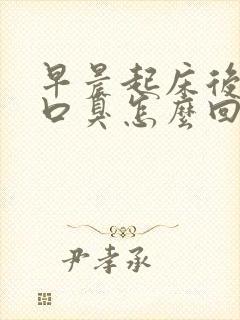 早晨起床後
口臭怎麼回
尹孝承